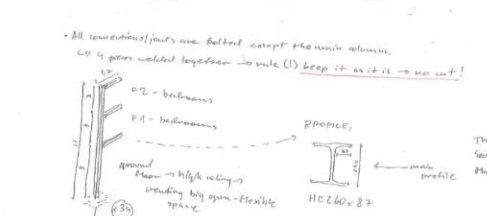 • All connections/joints are bolted except the main columns.
↳ 4 pieces welded together → rule (!) keep it as it is → no cut!
F2 - bedrooms
F1 - bedrooms
ground floor → high ceiling →
creating big open-flexible
space
x34
PROFILE:
main
profile
HE260x87